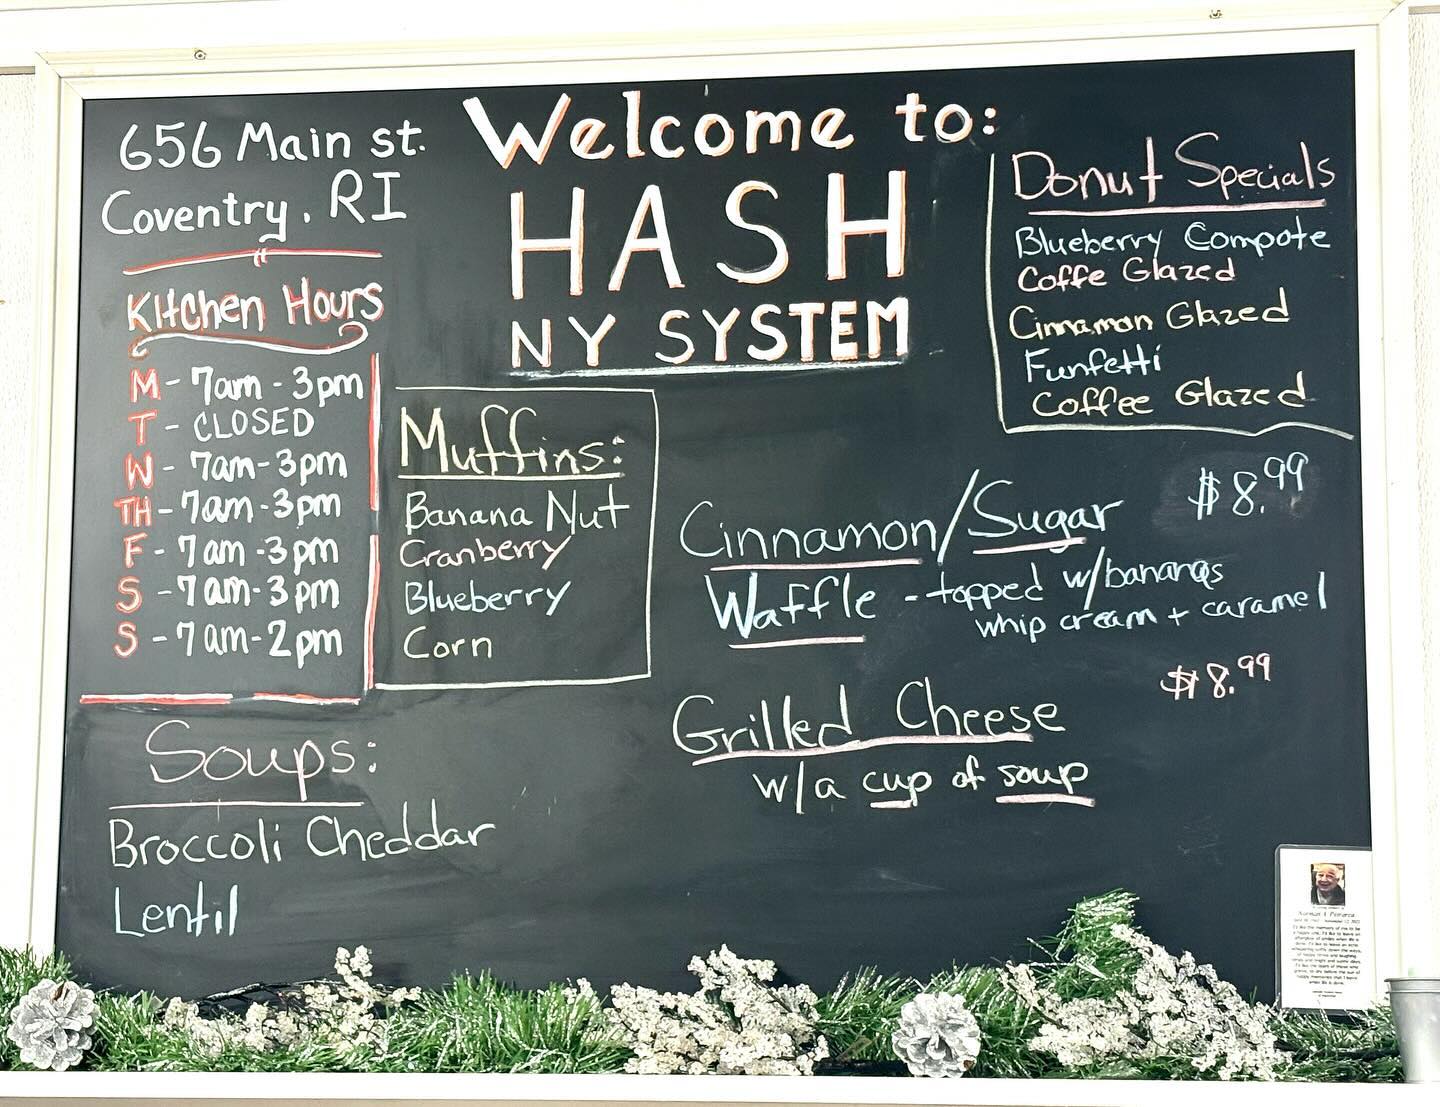 656 Main st.
Coventry, RI
Welcome to:
HASH
NY SYSTEM
Kitchen Hours
M - 7am - 3pm
T - CLOSED
W - 7am - 3pm
TH - 7am - 3pm
F - 7am - 3pm
S - 7am - 3pm
S - 7am - 2pm
Muffins:
Banana Nut
Cranberry
Blueberry
Corn
Donut Specials
Blueberry Compote
Coffe Glazed
Cinnamon Glazed
Funfetti
Coffee Glazed
$8.99
Cinnamon/Sugar
Waffle - topped w/bananas
whip cream + caramel
$8.99
Grilled Cheese
w/a cup of soup
Soups:
Broccoli Cheddar
Lentil